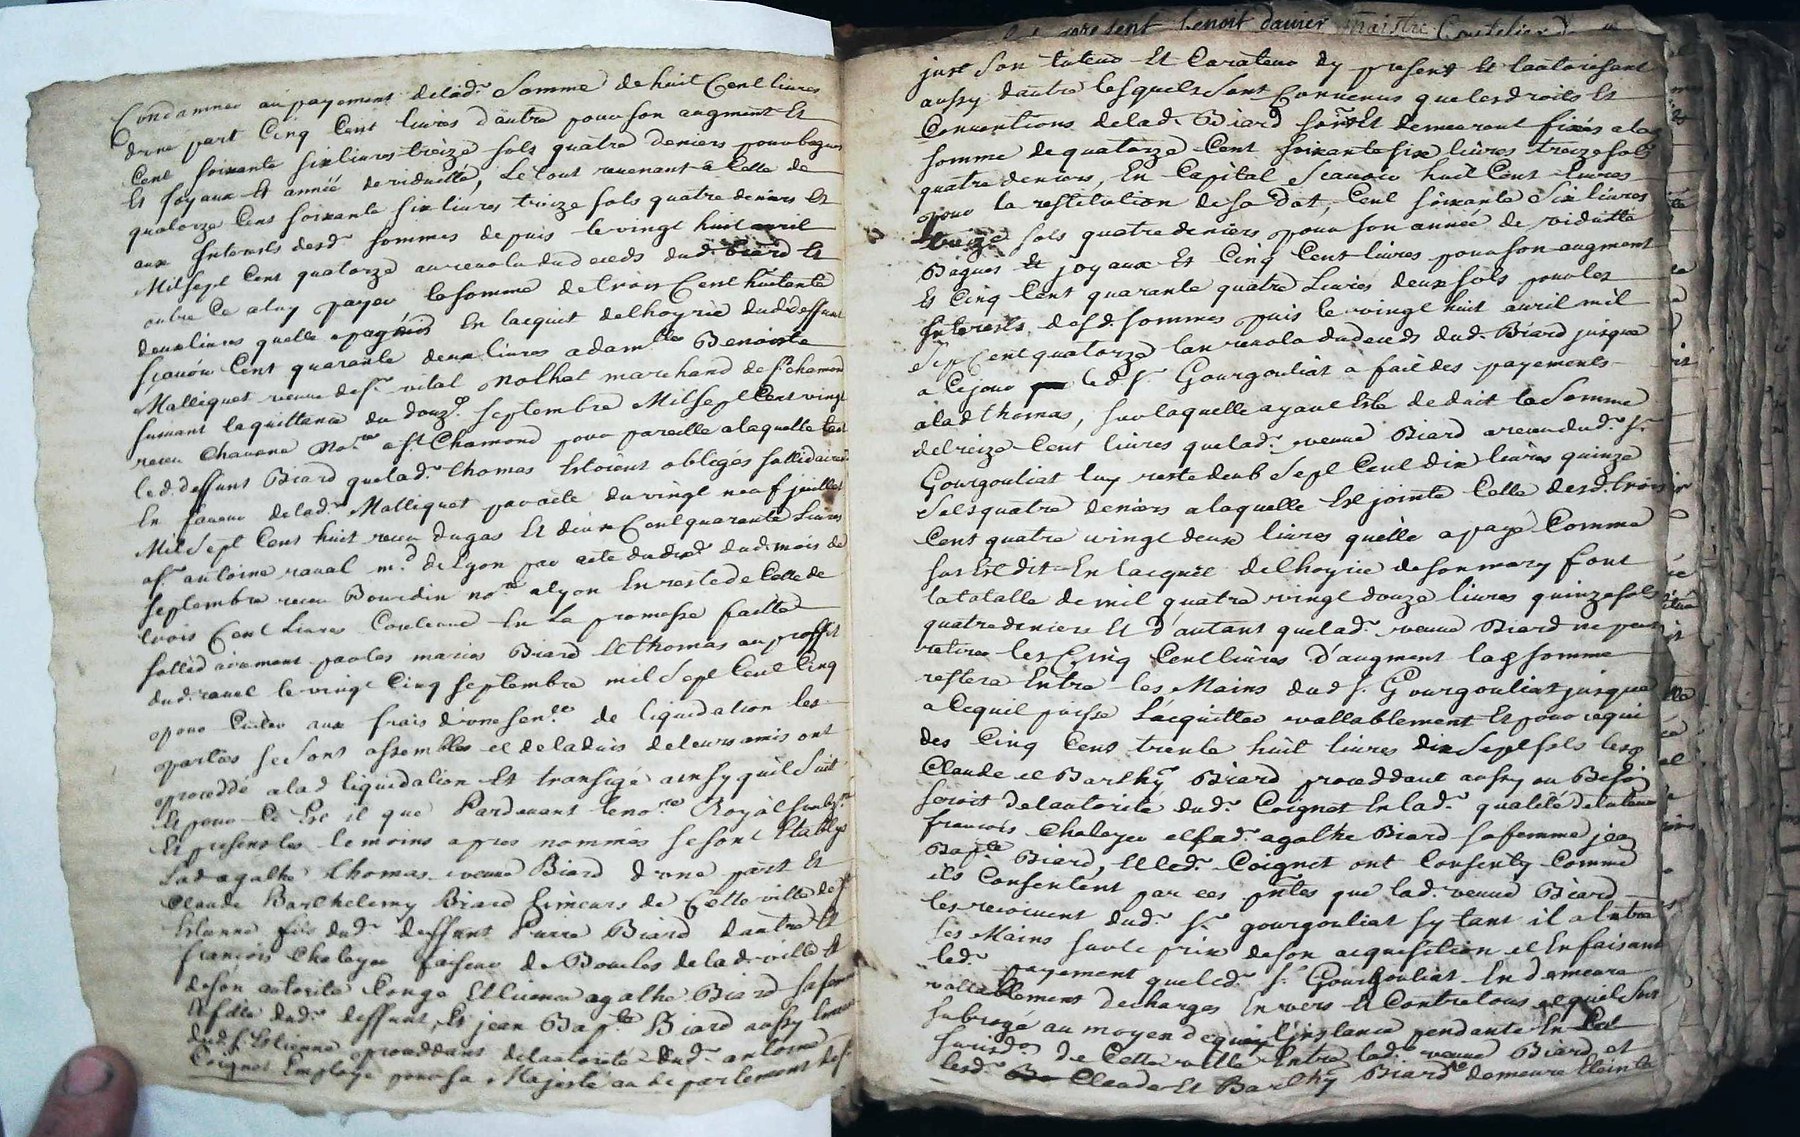 Condamnée au payement de lad.e somme de huit Cent livres
d'une part Cinq Cent livres d'autre pour son augment Et
Cent soixante six livres treize sols quatre deniers pour bagues
Et joyaux Et année de viduitté, Le tout revenant a Celle de
quatorze Cent soixante six livres treize sols quatre deniers Et
aux Interests desd. sommes depuis le vingt huit avril
Mil sept Cent quatorze au revolu du deceds dud. Biard Et
outre Ce a luy payer la somme de trois Cent huitante
deux livres quelle a payées En lacquit de lhoyrie dud. deffunt
scavoir Cent quarante deux livres a dam.lle Benoiste
Malliquet veuve de s.r vital Molhat marchand de s.t chamond
suivant la quittance du douz.e septembre Mil sept Cent vingt
receu Chavane No.re a s.t Chamond pour pareille a laquelle
led. deffunt Biard que lad.e thomas Estoient obligés sollidairem.t
En faveur de lad.e Malliquet par acte du vingt neuf juillet
Mil sept Cent huit receu dugas Et deux Cent quarante livres
a s.r antoine raval m.d de Lyon par acte du dix.e dud. mois de
septembre receu Bourdin no.re a lyon En reste de Celle de
trois Cent livres Contenue En La promesse faitte
sollidairement par les mariés Biard Et thomas au proffit
dud. raval le vingt Cinq septembre mil sept Cent Cinq
pour Eviter aux frais d'une sen.ce de liquidation les
parties se sont assemblés et de l'advis de leurs amis ont
proceddé a lad. liquidation Et transigé ainsy qu'il suit
Et pour Ce Est il que Pardevant le no.re Royal
Et presents les temoins apres nommés se sont Etablys
Lad. agathe thomas veuve Biard d'une part Et
Claude Barthelemy Biard Limeurs de Cette ville de s.t
Estienne fils dud. deffunt Pierre Biard d'autre Et
françois Chaleyer faiseur de Boucles de lad. ville Et
de son autorité Congé Et licence agathe Biard sa femme
Et fille dud. deffunt, Et jean Bap.te Biard aussy limeur
dud. s.t Etienne proceddant de lautorité dud. antoine
Coignet Employé pour sa Majesté au departement de s.t
just son tuteur Et Curateur Icy present Et lautorisant
aussy d'autre lesquels sont Convenus que les droits Et
Conventions de lad. Biard sont Et demeurent fixés a la
somme de quatorze Cent soixante six livres treize sols
quatre deniers, En Capital scavoir huit Cent livres
pour la restitution de sa Dot, Cent soixante six livres
treize sols quatre deniers pour son année de viduitté
Bagues Et joyaux Et Cinq Cent livres pour son augment
Et Cinq Cent quarante quatre Livres deux sols pour les
Interests desd. sommes puis le vingt huit avril mil
Sept Cent quatorze lan revolu du deceds dud. Biard jusque
a Ce jour led. s.r Gourgouliat a fait des payements
a lad. thomas, sur laquelle ayant Esté deduit la somme
de treize Cent livres que lad.e veuve Biard a receu dud. s.r
Gourgouliat luy reste deub Sept Cent dix livres quinze
sols quatre deniers a laquelle Est jointe Celle desd. trois
Cent quatre vingt deux livres quelle a payé Comme
sus Est dit En lacquit de lhoyrie de son mary font
la totalle de mil quatre vingt douze livres quinze sols
quatre deniers Et d'autant que lad.e veuve Biard ne peut
retirer les Cinq Cent livres d'augment lad. somme
restera Entre les Mains dud. s.r Gourgouliat jusque
a Ce quil puisse s'acquitter vallablement Et pour ce qui
des Cinq Cent trente huit livres dix sept sols lesd.
Claude et Barthy Biard proceddant aussy ou Besoin
seroit de lautorité dud. Coignet En lad. qualité de tuteur
françois Chaleyer et lad. agathe Biard sa femme jean
Bap.te Biard, Et led. Coignet ont Consenty Comme
ils Consentent par ces p.ntes que lad. veuve Biard
les recoivent dud. s.r gourgouliat sy tant il a Entre
les Mains sur le prix de son acquisition et En faisant
led. payement que led. s.r Gourgouliat En demeure
vallablement dechargés Envers Et Contre tous et quil soit
subrogé au moyen de quoy L'instance pendante En la
jurisd.on de Cette ville Entre lad.e veuve Biard et
lesd. Claude Et Barthy Biard demeure Eteinte